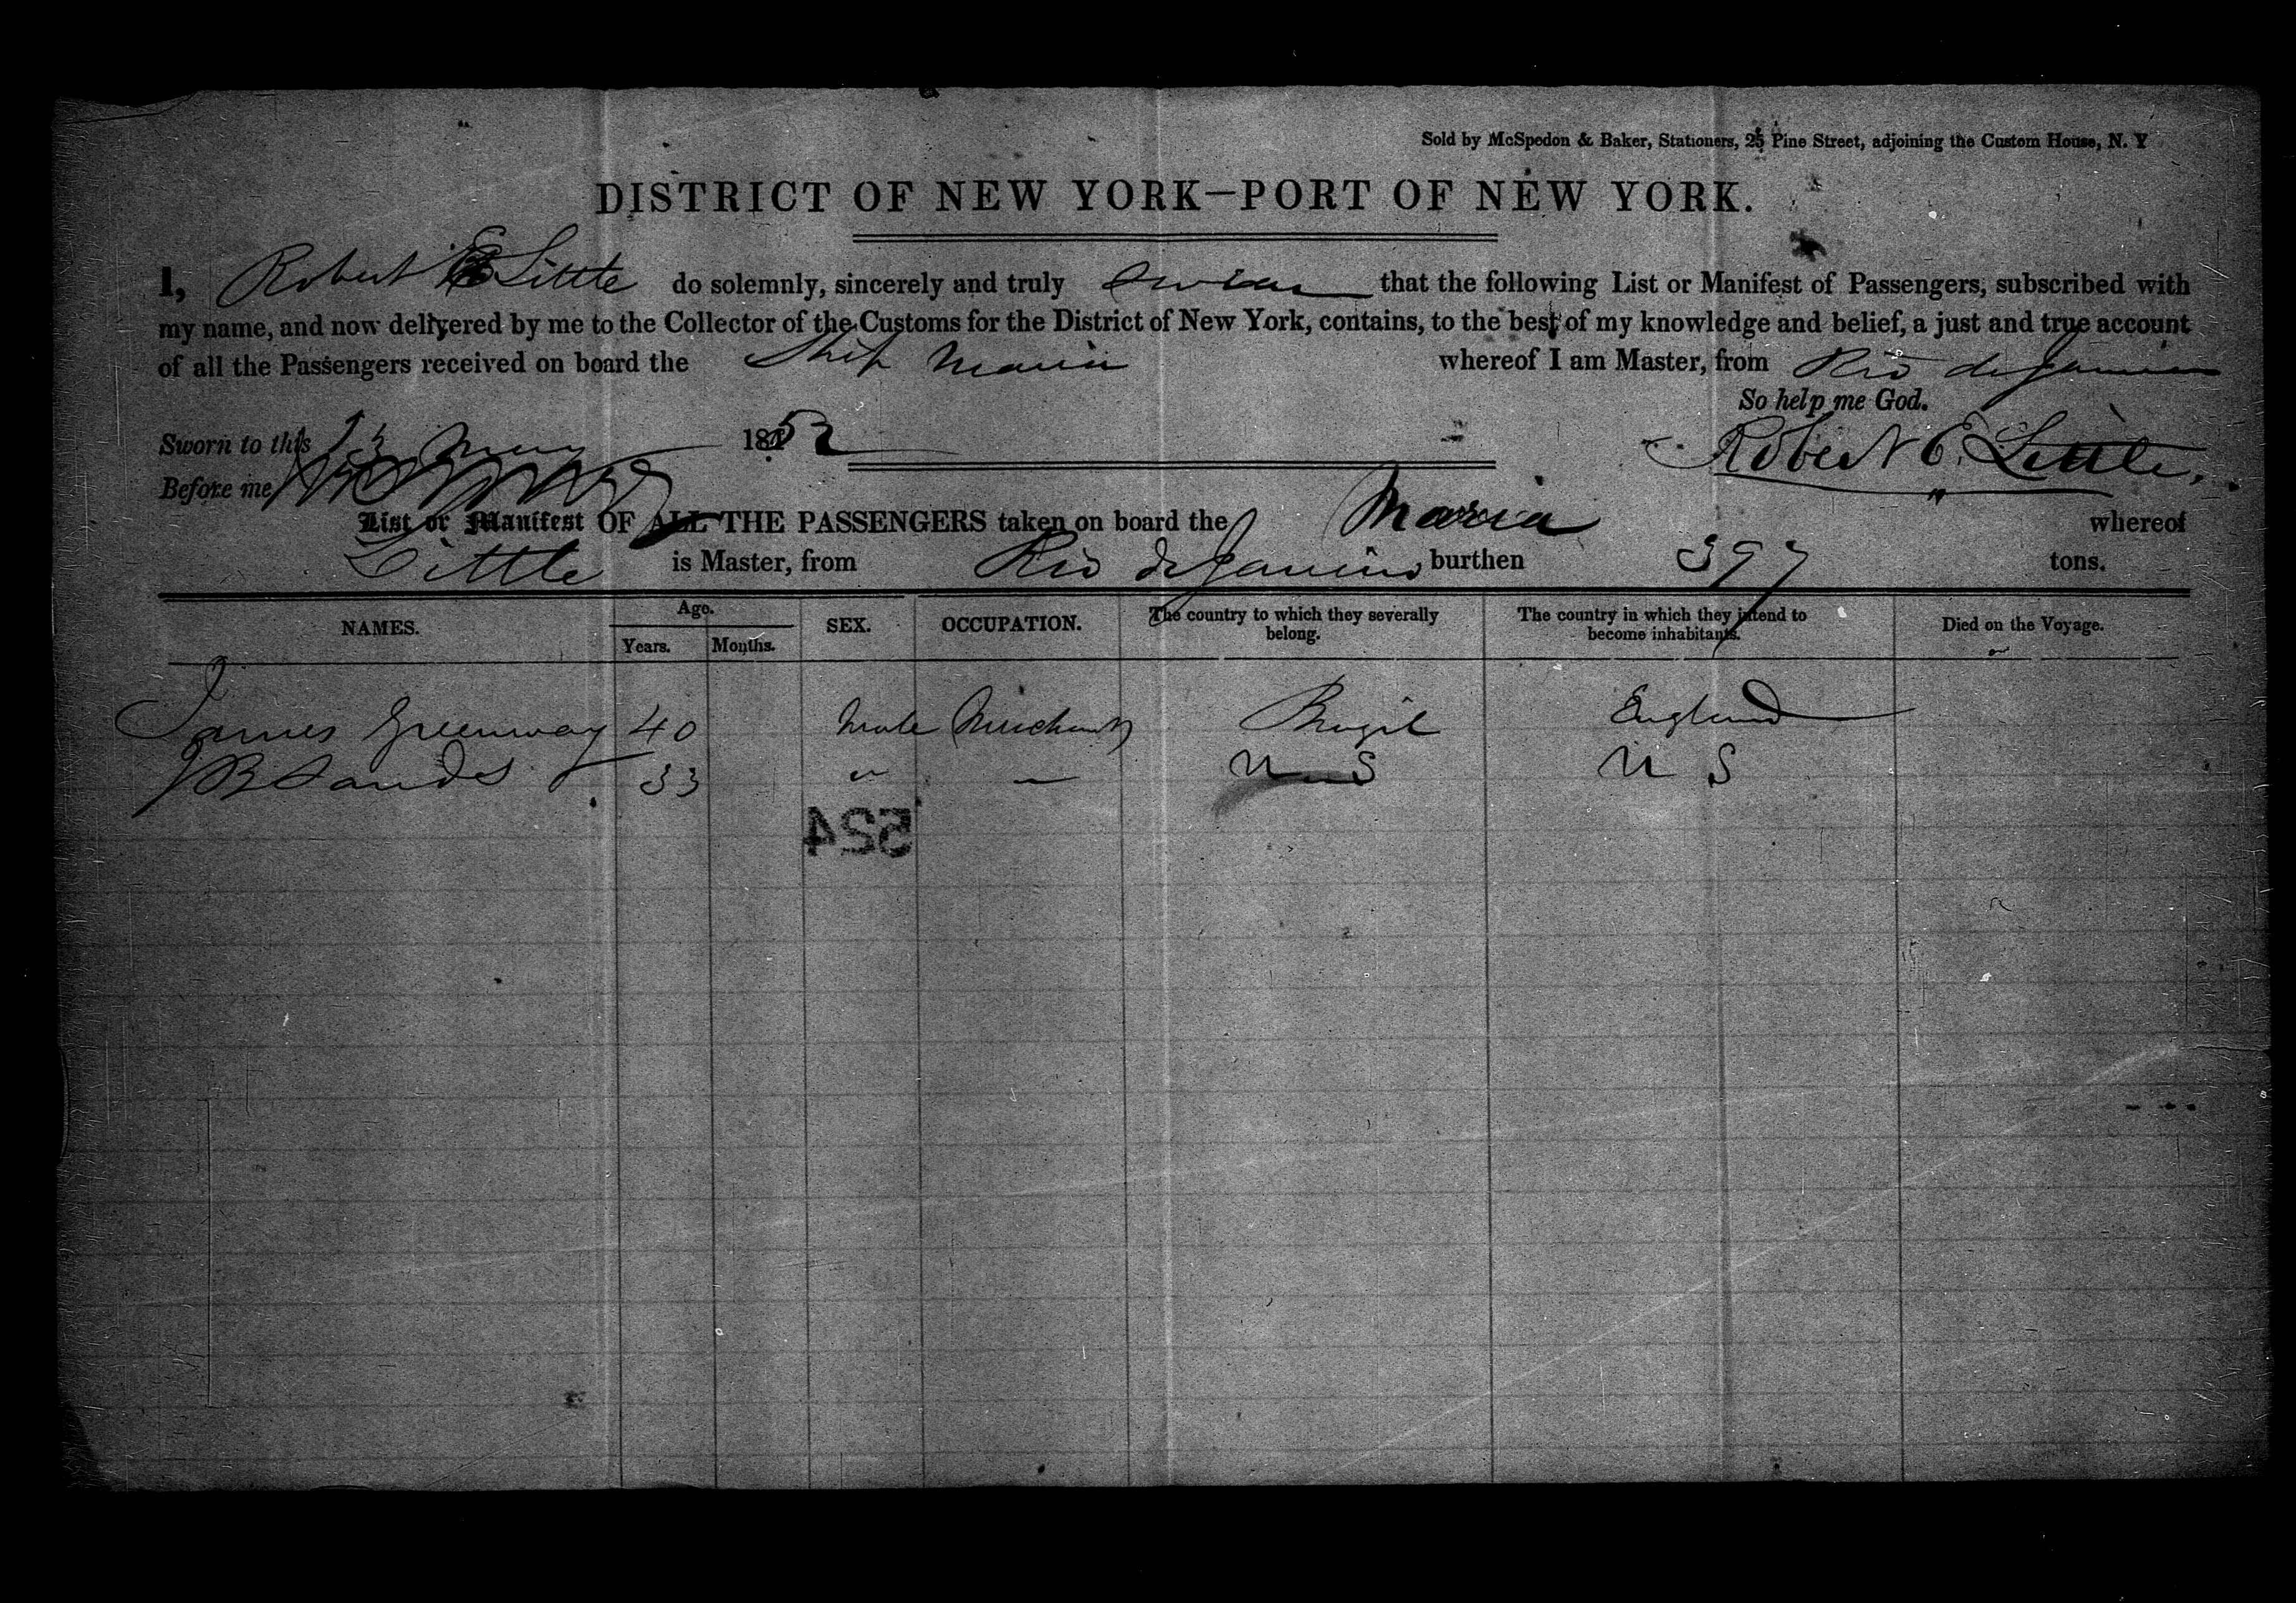 Sold by McSpedon & Baker, Stationers, 25 Pine Street, adjoining the Custom House, N. Y
DISTRICT OF NEW YORK—PORT OF NEW YORK.
I, Robert E Little do solemnly, sincerely and truly swear that the following List or Manifest of Passengers, subscribed with
my name, and now delivered by me to the Collector of the Customs for the District of New York, contains, to the best of my knowledge and belief, a just and true account
of all the Passengers received on board the Ship Maria whereof I am Master, from Rio de Janeiro
So help me God.
Sworn to this 13 May 1852 Robert E. Little.
Before me
List or Manifest OF ALL THE PASSENGERS taken on board the Maria whereof
Little is Master, from Rio de Janeiro burthen 397 tons.
NAMES. Age. Years. Months. SEX. OCCUPATION. The country to which they severally belong. The country in which they intend to become inhabitants. Died on the Voyage.
James Greenway 40 Male Merchant Brazil England
J B Sands 33 " " U S U S
524